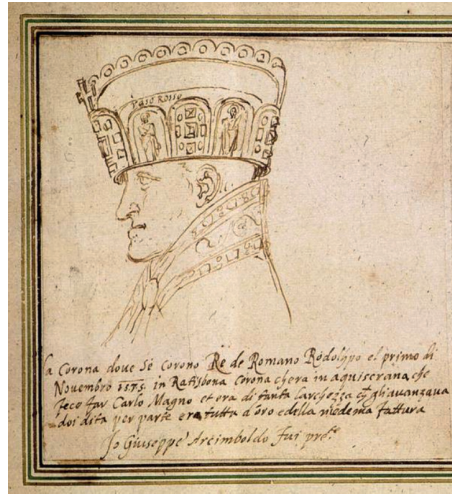 raso rosso
La Corona dove Sé Corono Re de Romano Rodolfo el primo di
Novembro 1575 in Ratisbona Corona chera in aquisgrana che
fece far Carlo Magno et era di tanta larghezza gli avanzava
doi dita per parte era tutta d'oro e della medema fattura
Jo Giuseppe Arcimboldo fui pre.te